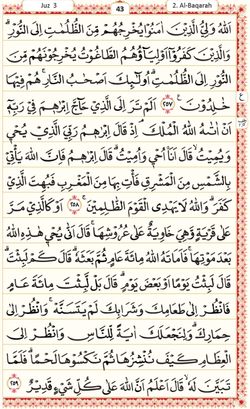 Juz 3
43
2. Al-Baqarah
اللّٰهُ وَلِيُّ الَّذِيْنَ اٰمَنُوْا يُخْرِجُهُمْ مِّنَ الظُّلُمٰتِ اِلَى النُّوْرِ ۗ
وَالَّذِيْنَ كَفَرُوْٓا اَوْلِيَاۤؤُهُمُ الطَّاغُوْتُ يُخْرِجُوْنَهُمْ مِّنَ
النُّوْرِ اِلَى الظُّلُمٰتِ ۗ اُولٰۤىِٕكَ اَصْحٰبُ النَّارِ ۚ هُمْ فِيْهَا
خٰلِدُوْنَ ۝٢٥٧ اَلَمْ تَرَ اِلَى الَّذِيْ حَاۤجَّ اِبْرٰهٖمَ فِيْ رَبِّهٖٓ
اَنْ اٰتٰىهُ اللّٰهُ الْمُلْكَ ۘ اِذْ قَالَ اِبْرٰهٖمُ رَبِّيَ الَّذِيْ يُحْيٖ
وَيُمِيْتُ ۙ قَالَ اَنَا۠ اُحْيٖ وَاُمِيْتُ ۗ قَالَ اِبْرٰهٖمُ فَاِنَّ اللّٰهَ يَأْتِيْ
بِالشَّمْسِ مِنَ الْمَشْرِقِ فَأْتِ بِهَا مِنَ الْمَغْرِبِ فَبُهِتَ الَّذِيْ
كَفَرَ ۗ وَاللّٰهُ لَا يَهْدِى الْقَوْمَ الظّٰلِمِيْنَ ۝٢٥٨ اَوْ كَالَّذِيْ مَرَّ
عَلٰى قَرْيَةٍ وَّهِيَ خَاوِيَةٌ عَلٰى عُرُوْشِهَا ۚ قَالَ اَنّٰى يُحْيٖ هٰذِهِ اللّٰهُ
بَعْدَ مَوْتِهَا ۚ فَاَمَاتَهُ اللّٰهُ مِائَةَ عَامٍ ثُمَّ بَعَثَهٗ ۗ قَالَ كَمْ لَبِثْتَ ۗ
قَالَ لَبِثْتُ يَوْمًا اَوْ بَعْضَ يَوْمٍ ۗ قَالَ بَلْ لَّبِثْتَ مِائَةَ عَامٍ
فَانْظُرْ اِلٰى طَعَامِكَ وَشَرَابِكَ لَمْ يَتَسَنَّهْ ۚ وَانْظُرْ اِلٰى
حِمَارِكَ ۗ وَلِنَجْعَلَكَ اٰيَةً لِّلنَّاسِ وَانْظُرْ اِلَى
الْعِظَامِ كَيْفَ نُنْشِزُهَا ثُمَّ نَكْسُوْهَا لَحْمًا ۗ فَلَمَّا
تَبَيَّنَ لَهٗ ۙ قَالَ اَعْلَمُ اَنَّ اللّٰهَ عَلٰى كُلِّ شَيْءٍ قَدِيْرٌ ۝٢٥٩